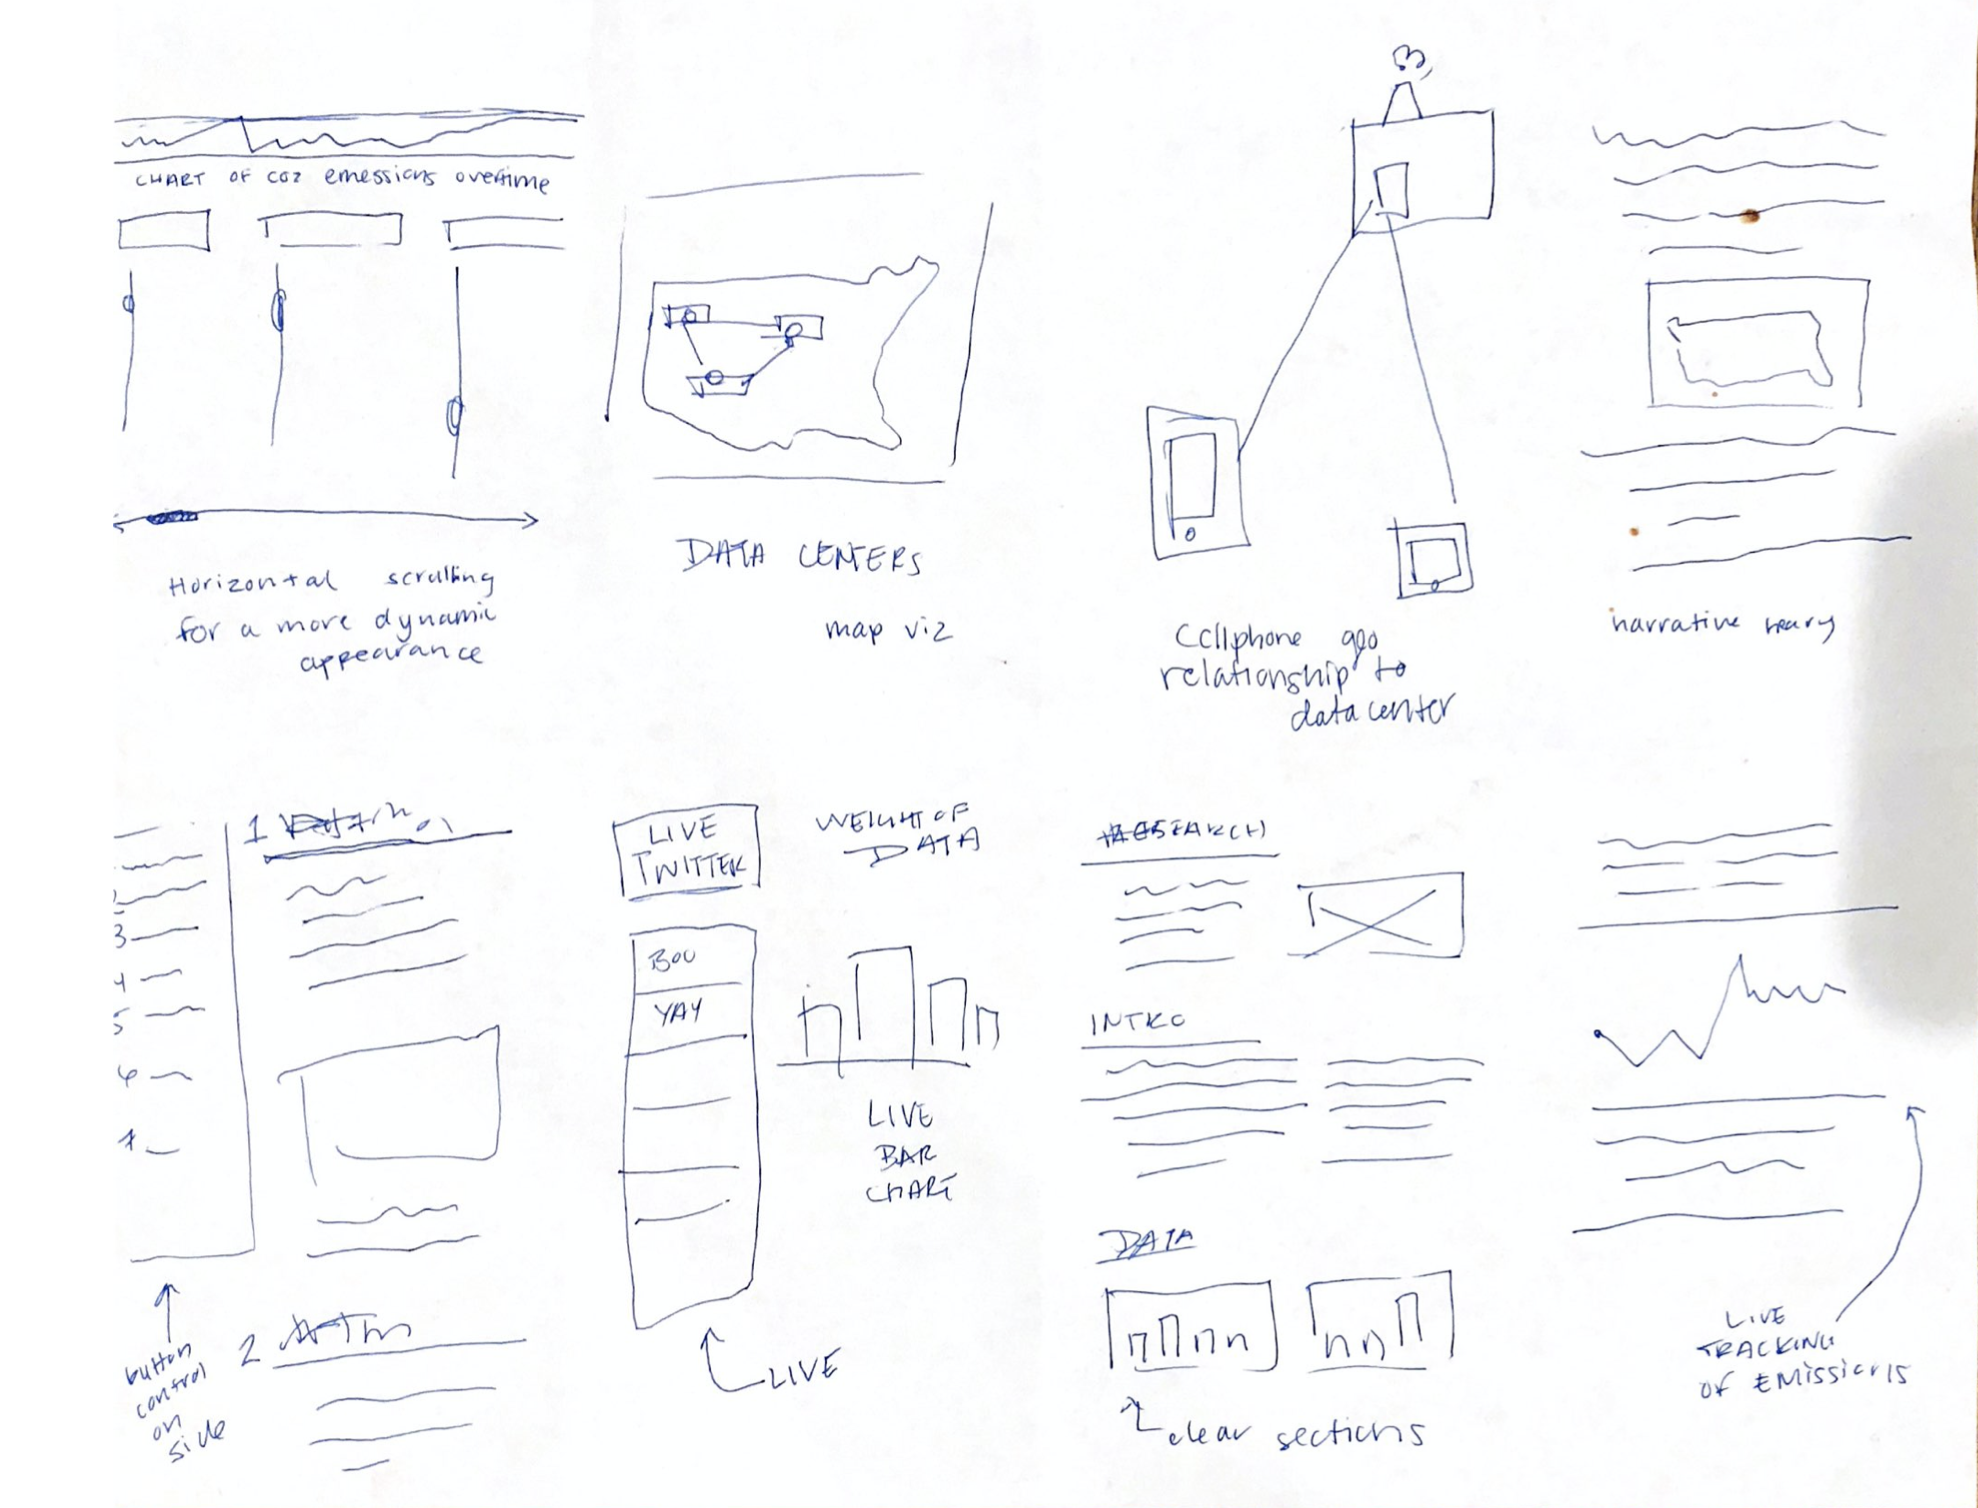 CHART OF CO2 emessions overtime
Horizontal scrolling
for a more dynamic
appearance
DATA CENTERS
map viz
Cellphone geo
relationship to
data center
narrative heavy
1
3
4
5
6
7
button
control
on
side
2
LIVE
TWITTER
BOO
YAY
LIVE
WEIGHT OF
DATA
LIVE
BAR
CHART
RESEARCH
INTRO
DATA
clear sections
LIVE
TRACKING
OF EMISSIONS